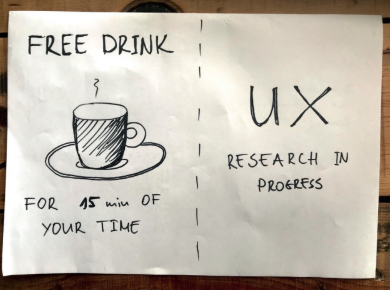 FREE DRINK
FOR 15 min OF
YOUR TIME
UX
RESEARCH IN
PROGRESS